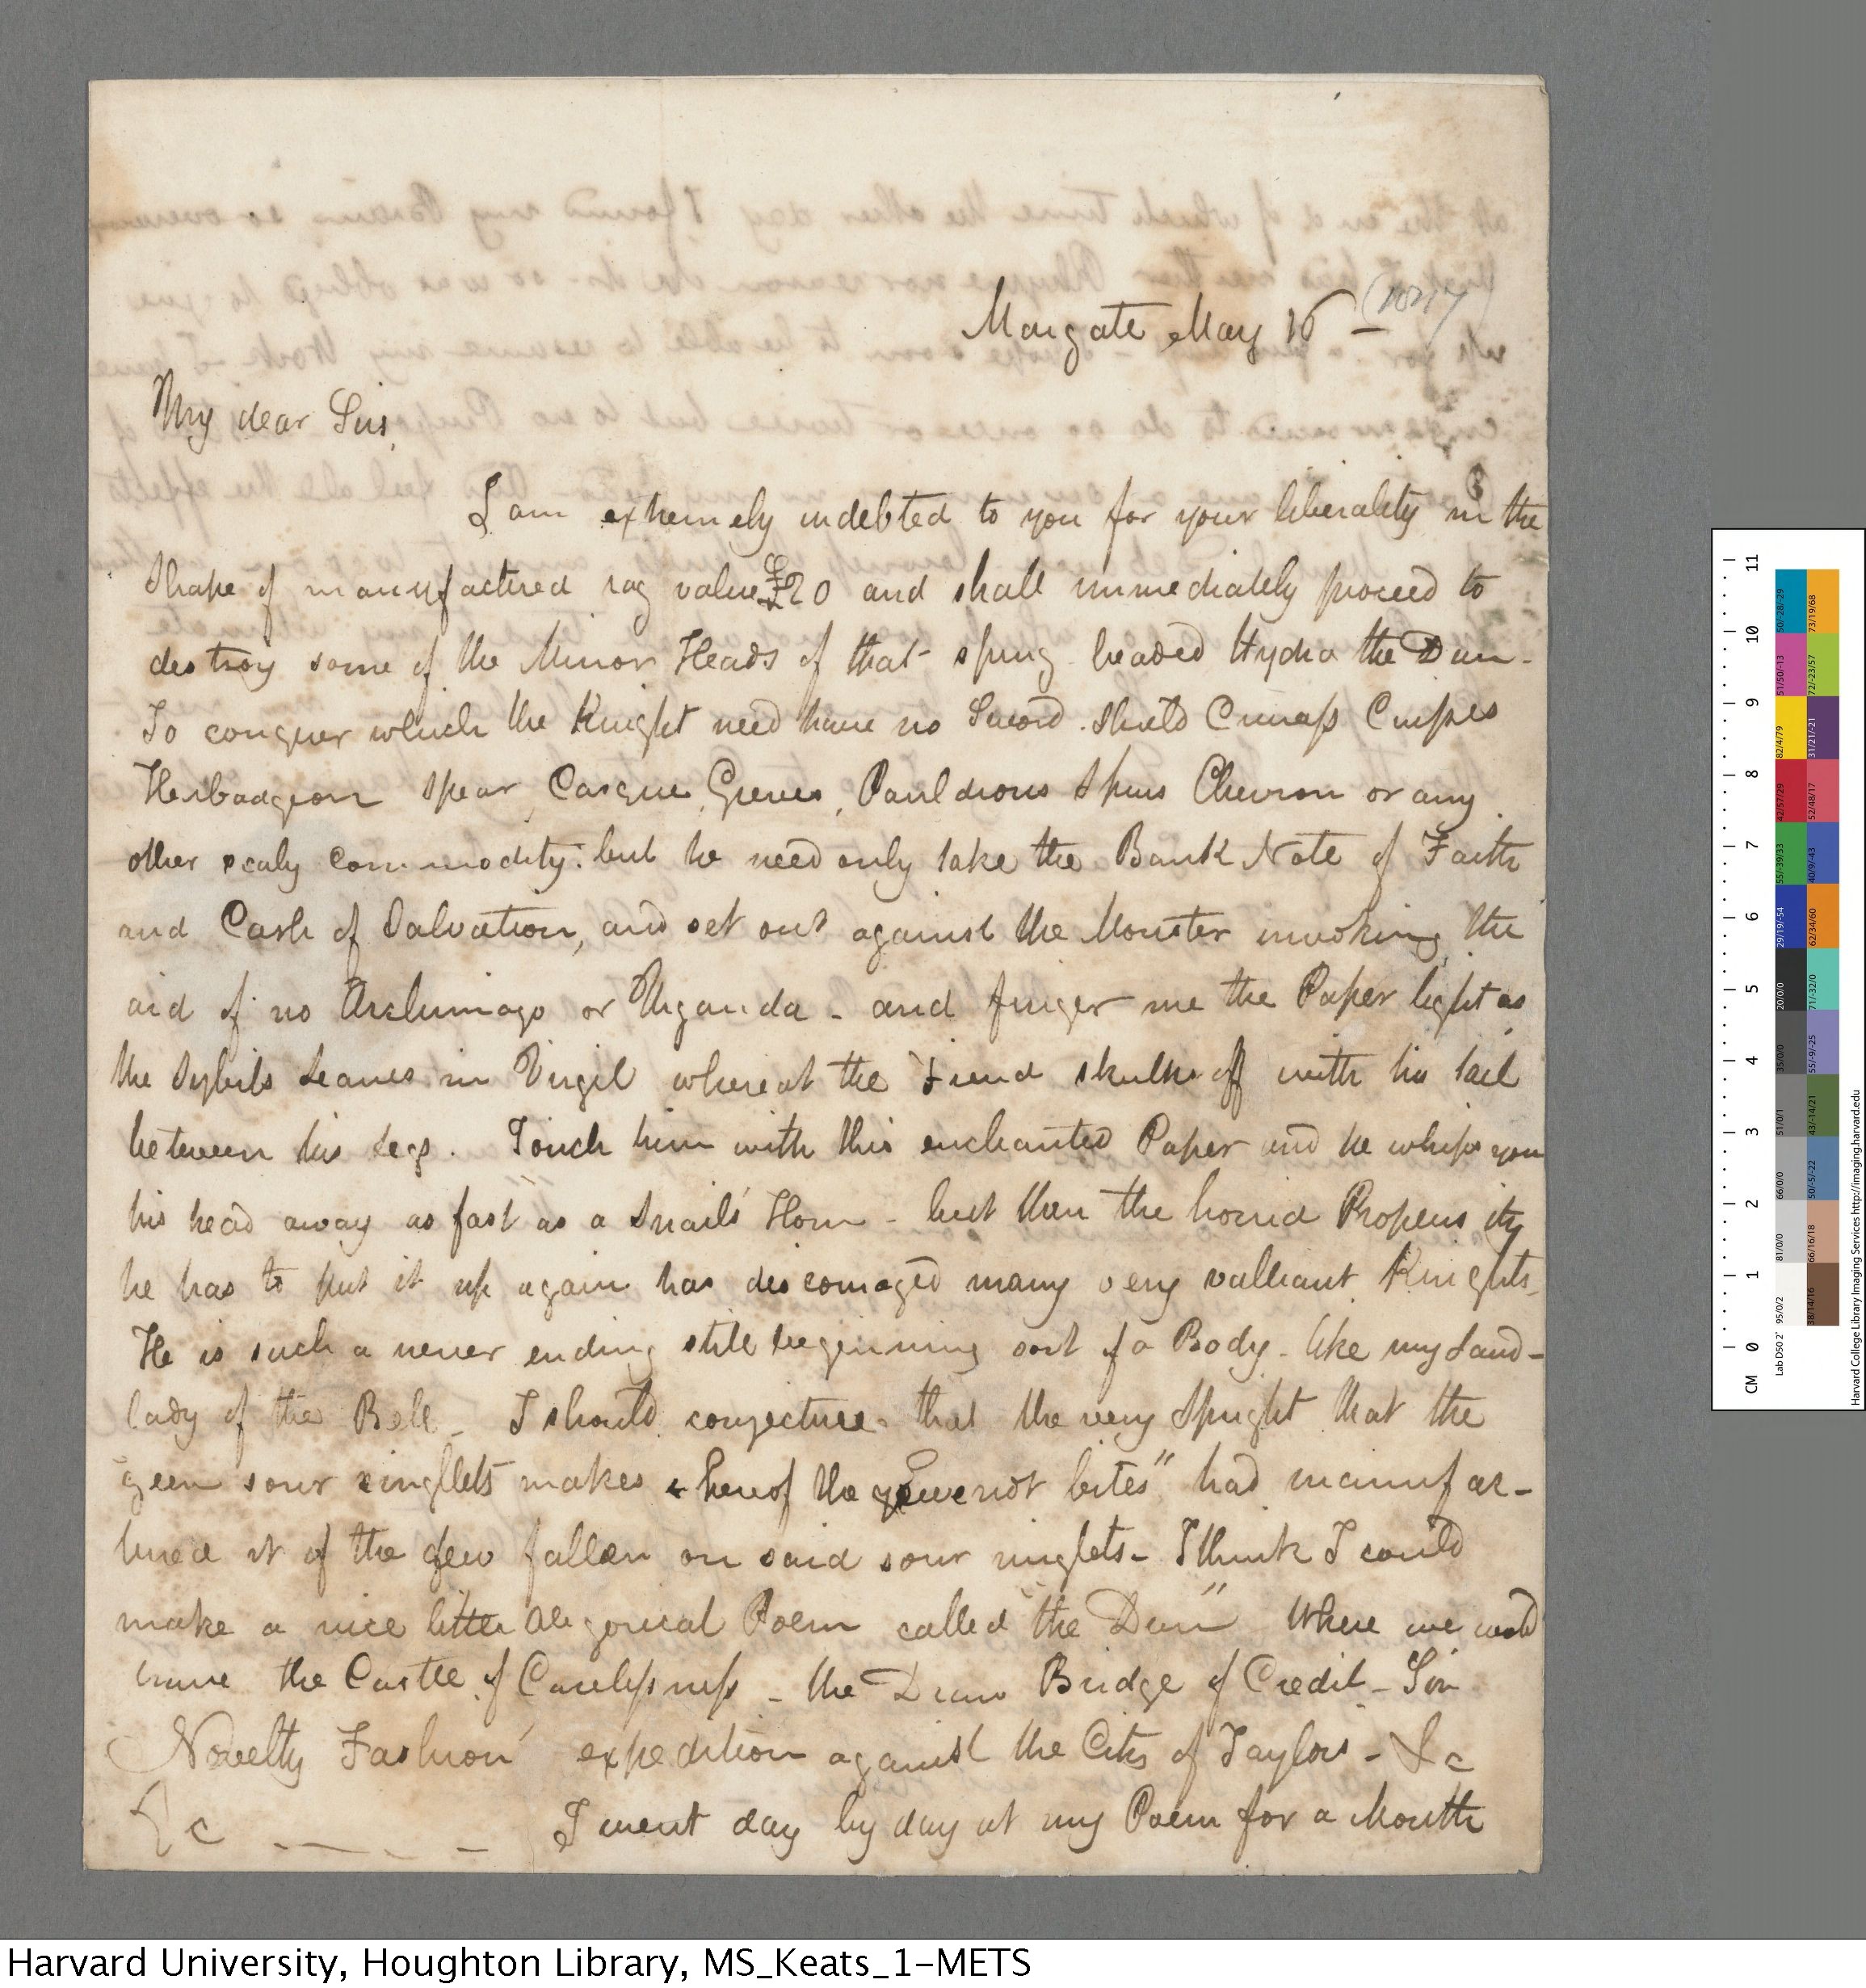 Margate May 16 – (1817)
My dear Sirs,
I am extremely indebted to you for your liberality in the
Shape of manufactured rag value £20 and shall immediately proceed to
destroy some of the Minor Heads of that spring-headed Hydra the Dun-
To conquer which the Knight need have no Sword. Shield Cuirass Cuisses
Herbadgeon Spear Casque, Greves, Pauldrons Spurs Chevron or any
other scaly commodity: but he need only take the Bank Note of Faith
and Cash of Salvation, and set out against the Monster invoking the
aid of no Archimago or Urganda – and finger me the Paper light as
the Sybils Leaves in Virgil whereat the Fiend skulks off with his tail
between his Legs. Touch him with this enchanted Paper and he whips you
his head away as fast as a Snail's Horn – but then the horrid Propensity
he has to put it up again has discouraged many very valliant Knights.
He is such a never ending still beginning sort of a Body – like my Land-
lady of the Bell – I should conjecture that the very Spright that the
"green sour ringlets makes whereof the Ewe not bites" had manufac-
tured it of the dew fallen on said sour ringlets – I think I could
make a nice little Allegorical Poem called "the Dun" Where we wold
have the Castle of Carelessness – the Draw Bridge of Credit – Sir
Novelty Fashion' expedition against the City of Taylors – &c
&c – – – – I went day by day at my Poem for a Month
CM 0 1 2 3 4 5 6 7 8 9 10 11
Harvard College Library Imaging Services http://imaging.harvard.edu
Harvard University, Houghton Library, MS_Keats_1-METS